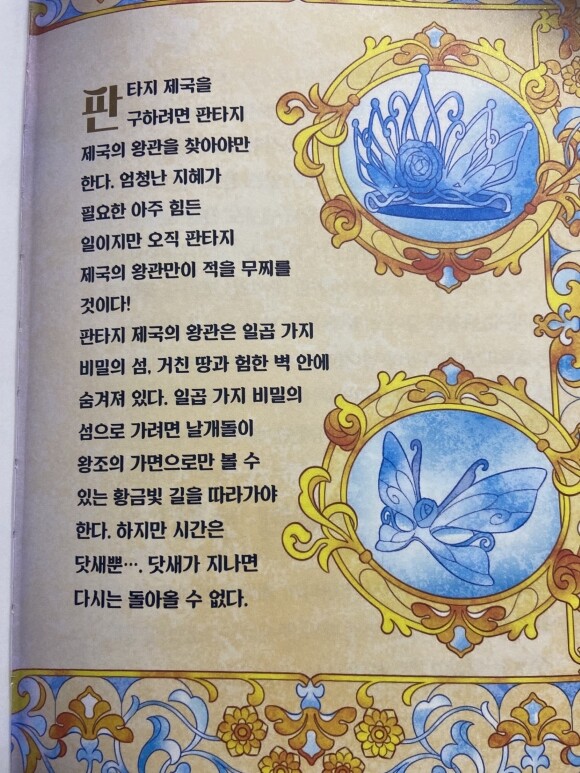 판타지 제국을
구하려면 판타지
제국의 왕관을 찾아야만
한다. 엄청난 지혜가
필요한 아주 힘든
일이지만 오직 판타지
제국의 왕관만이 적을 무찌를
것이다!
판타지 제국의 왕관은 일곱 가지
비밀의 섬, 거친 땅과 험한 벽 안에
숨겨져 있다. 일곱 가지 비밀의
섬으로 가려면 날개돋이
왕조의 가면으로만 볼 수
있는 황금빛 길을 따라가야
한다. 하지만 시간은
닷새뿐…. 닷새가 지나면
다시는 돌아올 수 없다.